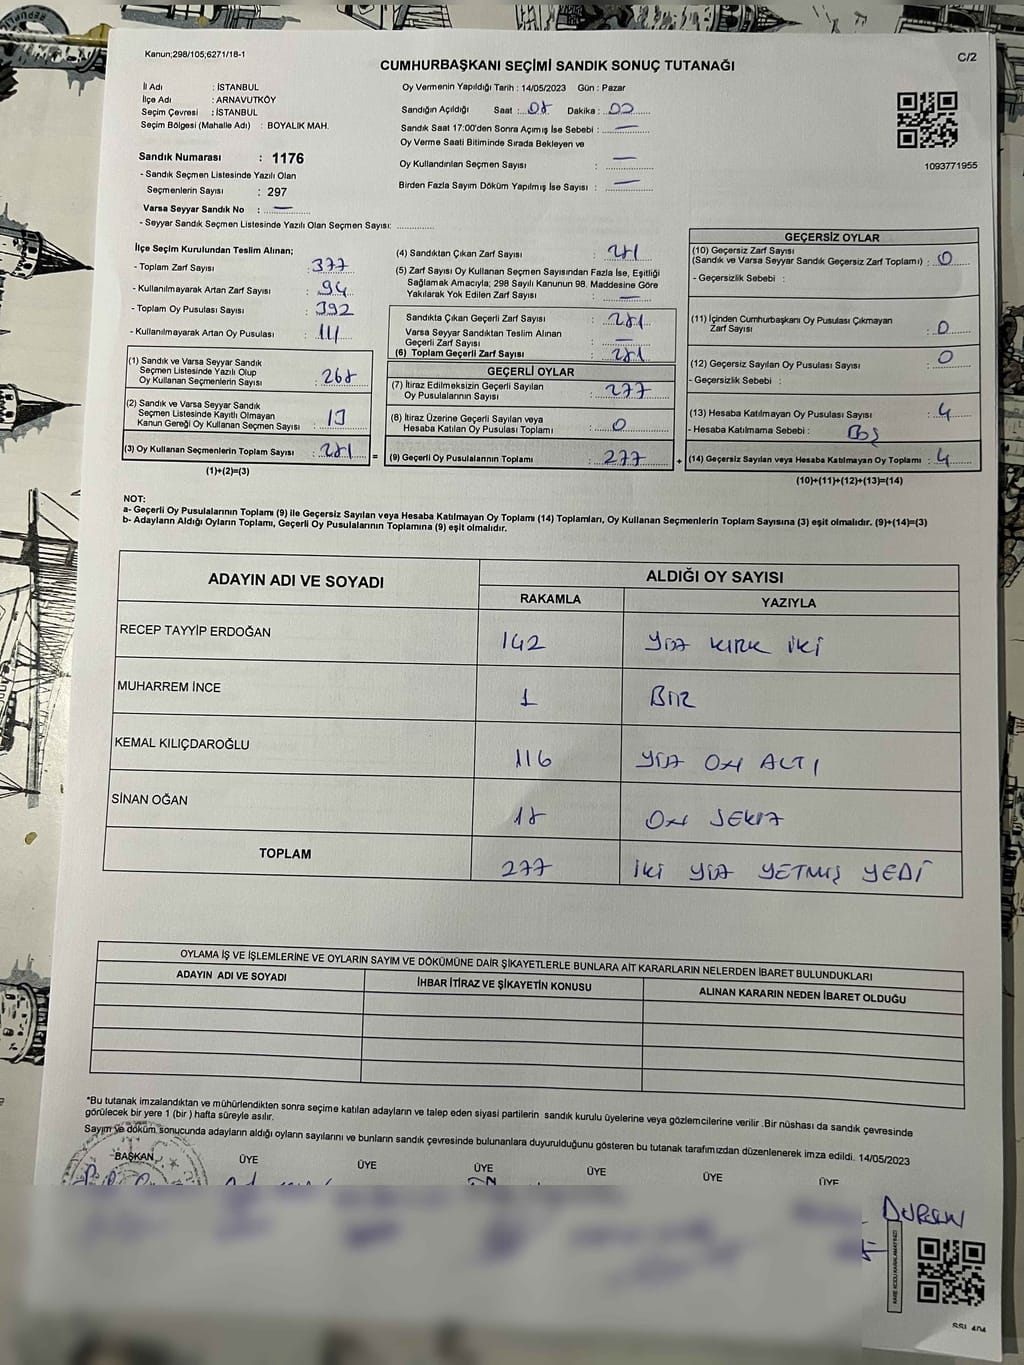 Kanun;298/105;6271/18-1
C/2
CUMHURBAŞKANI SEÇİMİ SANDIK SONUÇ TUTANAĞI
İl Adı : İSTANBUL
İlçe Adı : ARNAVUTKÖY
Seçim Çevresi : İSTANBUL
Seçim Bölgesi (Mahalle Adı) : BOYALIK MAH.
Sandık Numarası : 1176
- Sandık Seçmen Listesinde Yazılı Olan
Seçmenlerin Sayısı : 297
Varsa Seyyar Sandık No : —
- Seyyar Sandık Seçmen Listesinde Yazılı Olan Seçmen Sayısı: ..............
Oy Vermenin Yapıldığı Tarih : 14/05/2023 Gün : Pazar
Sandığın Açıldığı Saat : 08 Dakika : 00
Sandık Saat 17:00'den Sonra Açımış İse Sebebi : —
Oy Verme Saati Bitiminde Sırada Bekleyen ve
Oy Kullandırılan Seçmen Sayısı : —
Birden Fazla Sayım Döküm Yapılmış İse Sayısı : —
1093771955
İlçe Seçim Kurulundan Teslim Alınan;
- Toplam Zarf Sayısı : 377
- Kullanılmayarak Artan Zarf Sayısı : 94
- Toplam Oy Pusulası Sayısı : 392
- Kullanılmayarak Artan Oy Pusulası : 111
(1) Sandık ve Varsa Seyyar Sandık
Seçmen Listesinde Yazılı Olup
Oy Kullanan Seçmenlerin Sayısı : 268
(2) Sandık ve Varsa Seyyar Sandık
Seçmen Listesinde Kayıtlı Olmayan
Kanun Gereği Oy Kullanan Seçmen Sayısı : 13
(3) Oy Kullanan Seçmenlerin Toplam Sayısı : 281 =
(1)+(2)=(3)
(4) Sandıktan Çıkan Zarf Sayısı : 281
(5) Zarf Sayısı Oy Kullanan Seçmen Sayısından Fazla İse, Eşitliği
Sağlamak Amacıyla; 298 Sayılı Kanunun 98. Maddesine Göre
Yakılarak Yok Edilen Zarf Sayısı : —
Sandıkta Çıkan Geçerli Zarf Sayısı : 281
Varsa Seyyar Sandıktan Teslim Alınan
Geçerli Zarf Sayısı : —
(6) Toplam Geçerli Zarf Sayısı : 281
GEÇERLİ OYLAR
(7) İtiraz Edilmeksizin Geçerli Sayılan
Oy Pusulalarının Sayısı : 277
(8) İtiraz Üzerine Geçerli Sayılan veya
Hesaba Katılan Oy Pusulası Toplamı : 0
(9) Geçerli Oy Pusulalarının Toplamı : 277 +
GEÇERSİZ OYLAR
(10) Geçersiz Zarf Sayısı
(Sandık ve Varsa Seyyar Sandık Geçersiz Zarf Toplamı) : 0
- Geçersizlik Sebebi :
(11) İçinden Cumhurbaşkanı Oy Pusulası Çıkmayan
Zarf Sayısı : 0
(12) Geçersiz Sayılan Oy Pusulası Sayısı : 0
- Geçersizlik Sebebi :
(13) Hesaba Katılmayan Oy Pusulası Sayısı : 4
- Hesaba Katılmama Sebebi : BOŞ
(14) Geçersiz Sayılan veya Hesaba Katılmayan Oy Toplamı : 4
(10)+(11)+(12)+(13)=(14)
NOT:
a- Geçerli Oy Pusulalarının Toplamı (9) ile Geçersiz Sayılan veya Hesaba Katılmayan Oy Toplamı (14) Toplamları, Oy Kullanan Seçmenlerin Toplam Sayısına (3) eşit olmalıdır. (9)+(14)=(3)
b- Adayların Aldığı Oyların Toplamı, Geçerli Oy Pusulalarının Toplamına (9) eşit olmalıdır.
ADAYIN ADI VE SOYADI
ALDIĞI OY SAYISI
RAKAMLA YAZIYLA
RECEP TAYYİP ERDOĞAN 142 YÜZ KIRK İKİ
MUHARREM İNCE 1 BİR
KEMAL KILIÇDAROĞLU 116 YÜZ ON ALTI
SİNAN OĞAN 18 ON SEKİZ
TOPLAM 277 İKİ YÜZ YETMİŞ YEDİ
OYLAMA İŞ VE İŞLEMLERİNE VE OYLARIN SAYIM VE DÖKÜMÜNE DAİR ŞİKAYETLERLE BUNLARA AİT KARARLARIN NELERDEN İBARET BULUNDUKLARI
ADAYIN ADI VE SOYADI İHBAR İTİRAZ VE ŞİKAYETİN KONUSU ALINAN KARARIN NEDEN İBARET OLDUĞU
*Bu tutanak imzalandıktan ve mühürlendikten sonra seçime katılan adayların ve talep eden siyasi partilerin sandık kurulu üyelerine veya gözlemcilerine verilir .Bir nüshası da sandık çevresinde
görülecek bir yere 1 (bir ) hafta süreyle asılır.
Sayım ve döküm sonucunda adayların aldığı oyların sayılarını ve bunların sandık çevresinde bulunanlara duyurulduğunu gösteren bu tutanak tarafımızdan düzenlenerek imza edildi. 14/05/2023
BAŞKAN ÜYE ÜYE ÜYE ÜYE ÜYE ÜYE
DURSUN
KARE KODU KARALAMAYINIZ!